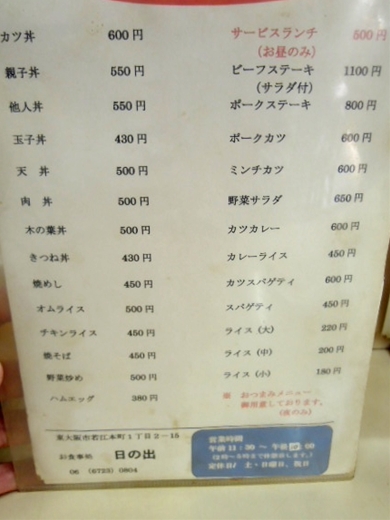 カツ丼 600円
親子丼 550円
他人丼 550円
玉子丼 430円
天 丼 500円
肉 丼 500円
木の葉丼 500円
きつね丼 430円
焼めし 450円
オムライス 500円
チキンライス 450円
焼そば 450円
野菜炒め 500円
ハムエッグ 380円
サービスランチ 500円
(お昼のみ)
ビーフステーキ 1100円
(サラダ付)
ポークステーキ 800円
ポークカツ 600円
ミンチカツ 600円
野菜サラダ 650円
カツカレー 600円
カレーライス 450円
カツスパゲティ 600円
スパゲティ 450円
ライス(大) 220円
ライス(中) 200円
ライス(小) 180円
※ おつまみメニュー
御用意しております。
(夜のみ)
東大阪市若江本町1丁目2-15
お食事処 日の出
06 (6723) 0804
営業時間
午前11:30~午後
定休日/ 土・日曜日、祝日